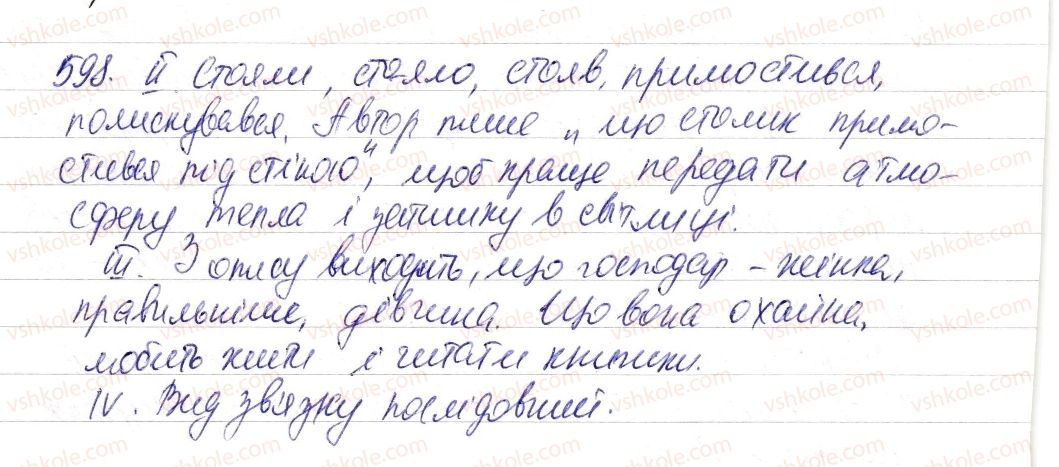 598. II Стояли, стояло, стояв, примостився,
полискувався. Автор пише „що столик примо-
стився під стіною", щоб краще передати атмо-
сферу тепла і затишку в світлиці.
III. З опису виходить, що господар - жінка,
правильніше, дівчина. Що вона охайна,
любить жити і читати книжки.
IV. Вид зв'язку послідовний.
vshkole.com